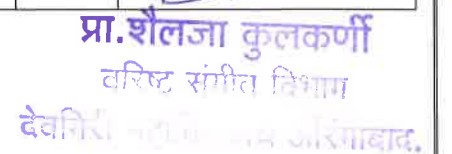 प्रा.शैलजा कुलकर्णी
वरिष्ट संगीत विभाग
देवगिरी औरंगाबाद.